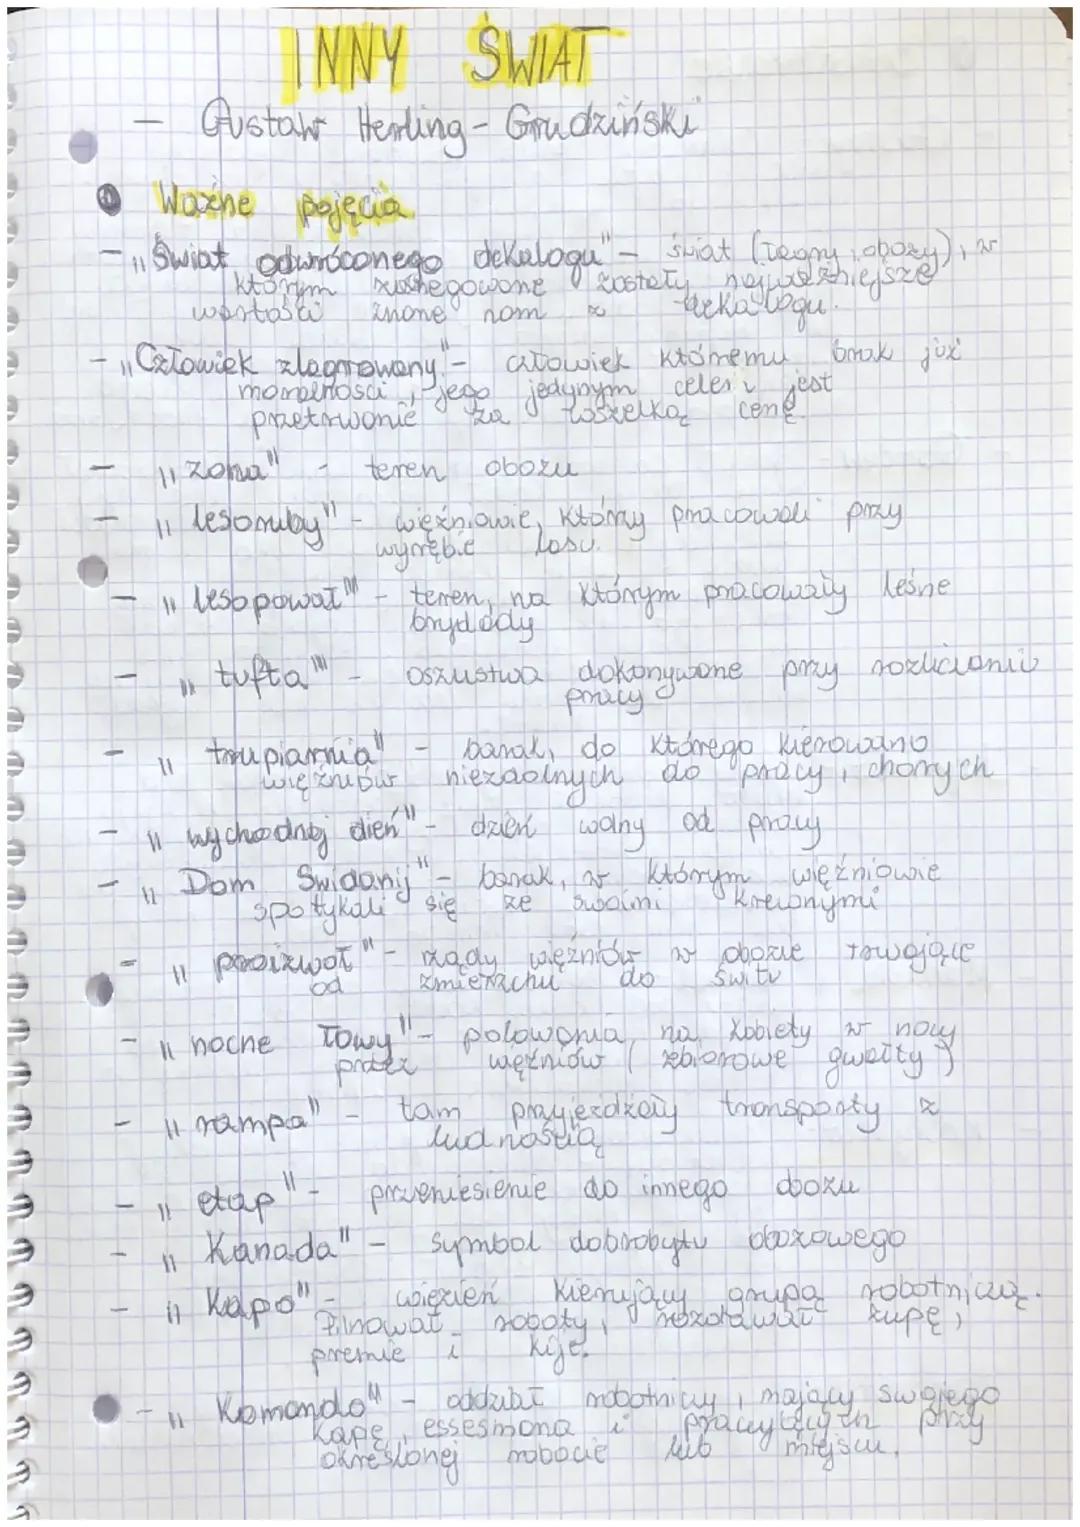 INNY ŚWIAT
- Gustaw Herling-Grudziński
Ważne pojęcia
- "Świat odwróconego dekalogu" - świat (łagry, obozy), w
którym zostały najważniejsze
wartości znane nam z dekalogu.
- "Człowiek zlagrowany" - człowiek któremu brak już
moralności, jego jedynym celem jest
przetrwanie za wszelką cenę.
- "zona" - teren obozu
- "lesoruby" - więźniowie, którzy pracowali przy
wyrębie lasu.
- "lesopował" - teren, na którym pracowały leśne
brygady
- "tufta" - oszustwa dokonywane przy rozliczaniu
pracy
- "trupiarnia" - barak, do którego kierowano
więźniów niezdolnych do pracy, chorych
- "wychodnoj dień" - dzień wolny od pracy
- "Dom Swidanij" - barak, w którym więźniowie
spotykali się ze swoimi krewnymi
- "proizwoł" - rządy więźniów w obozie trwające
od zmierzchu do świtu
- "nocne łowy" - polowania na kobiety w nocy
przez więźniów (zbiorowe gwałty)
- "rampa" - tam przyjeżdżały transporty z
ludnością
- "etap" - przeniesienie do innego obozu
- "Kanada" - symbol dobrobytu obozowego
- "Kapo" - więzień kierujący grupą robotniczą.
Pilnował roboty, rozdawał zupę,
premie i kije.
- "Komando" - oddział robotniczy, mający swojego
kapę, essesmana i pracujących przy
określonej robocie lub miejscu.